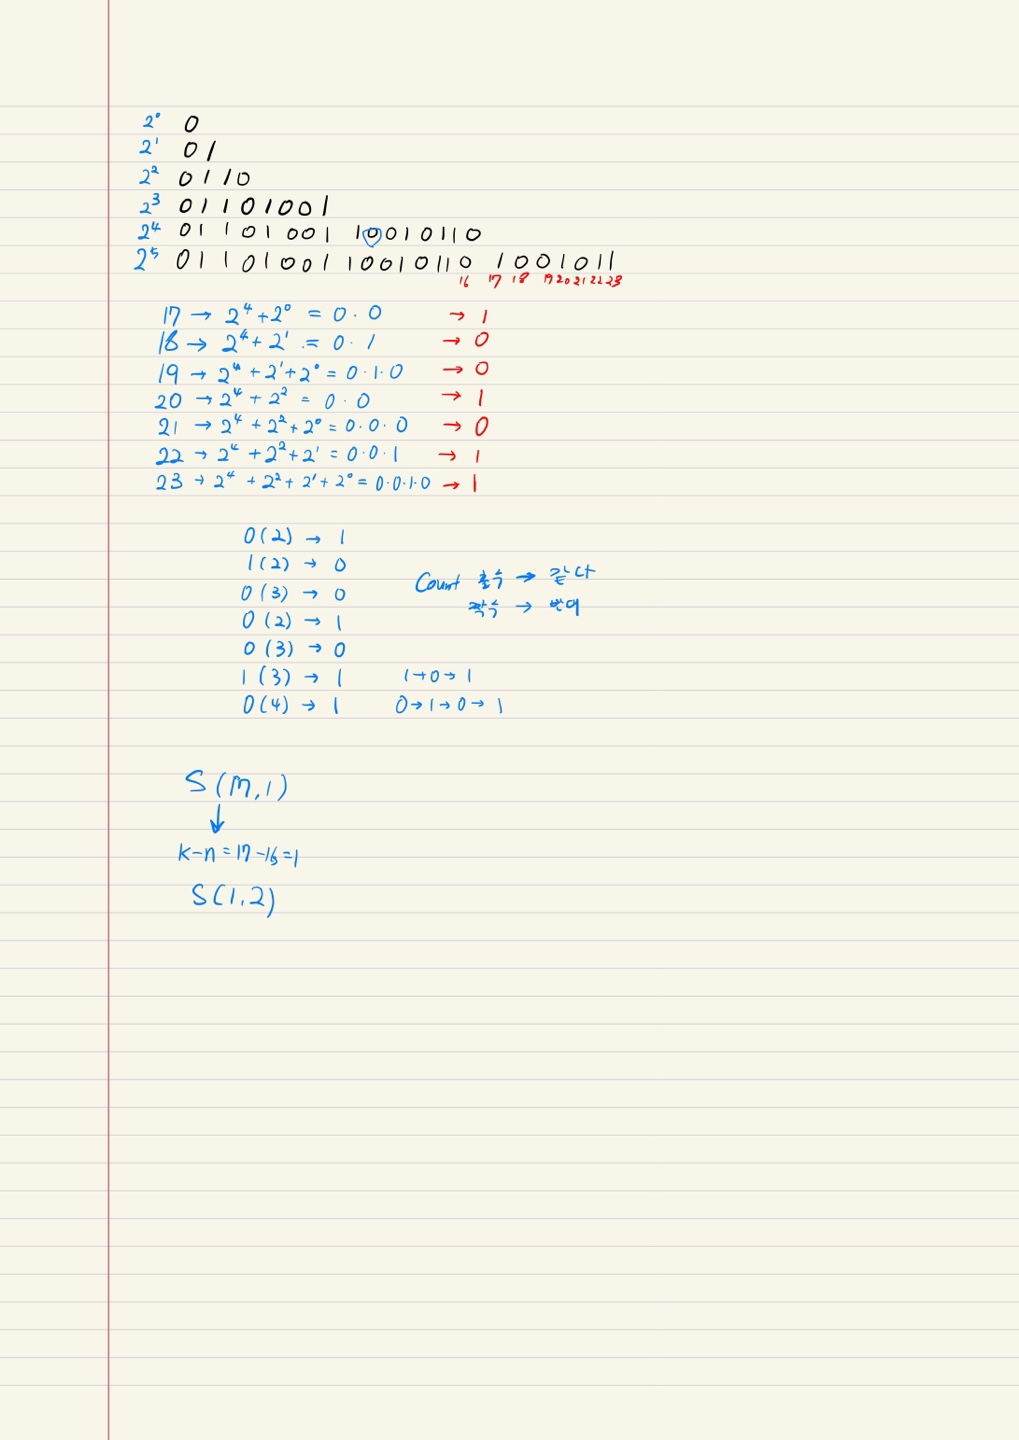 2⁰ 0
2¹ 0 1
2² 0 1 1 0
2³ 0 1 1 0 1 0 0 1
2⁴ 0 1 1 0 1 0 0 1 1 0 0 1 0 1 1 0
2⁵ 0 1 1 0 1 0 0 1 1 0 0 1 0 1 1 0 1 0 0 1 0 1 1
16 17 18 19 20 21 22 23
17 → 2⁴ + 2⁰ = 0 · 0 → 1
18 → 2⁴ + 2¹ = 0 · 1 → 0
19 → 2⁴ + 2¹ + 2⁰ = 0 · 1 · 0 → 0
20 → 2⁴ + 2² = 0 · 0 → 1
21 → 2⁴ + 2² + 2⁰ = 0 · 0 · 0 → 0
22 → 2⁴ + 2² + 2¹ = 0 · 0 · 1 → 1
23 → 2⁴ + 2² + 2¹ + 2⁰ = 0 · 0 · 1 · 0 → 1
0 (2) → 1
1 (2) → 0
0 (3) → 0
0 (2) → 1
0 (3) → 0
1 (3) → 1 1 → 0 → 1
0 (4) → 1 0 → 1 → 0 → 1
Count 홀수 → 같다
짝수 → 반대
S (17, 1)
↓
k-n = 17-16 = 1
S (1, 2)